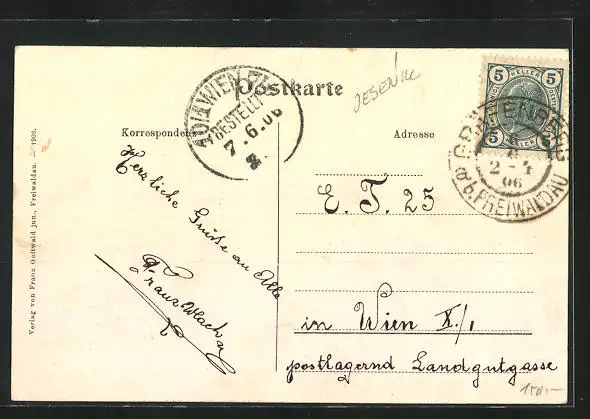 Postkarte
JESENIK
Korrespondenz
Adresse
10/1 WIEN
BESTELLT
7.6.06
5 HELLER 5
5 HELLER 5
GRÄFENBERG
6
2-4
06
b. FREIWALDAU
Herzliche Grüsse an Alle
Franz
E. T. 25
in Wien X/1
postlagernd Landgutgasse
Verlag von Franz Gottwald jun., Freiwaldau. — 1906.
150.-